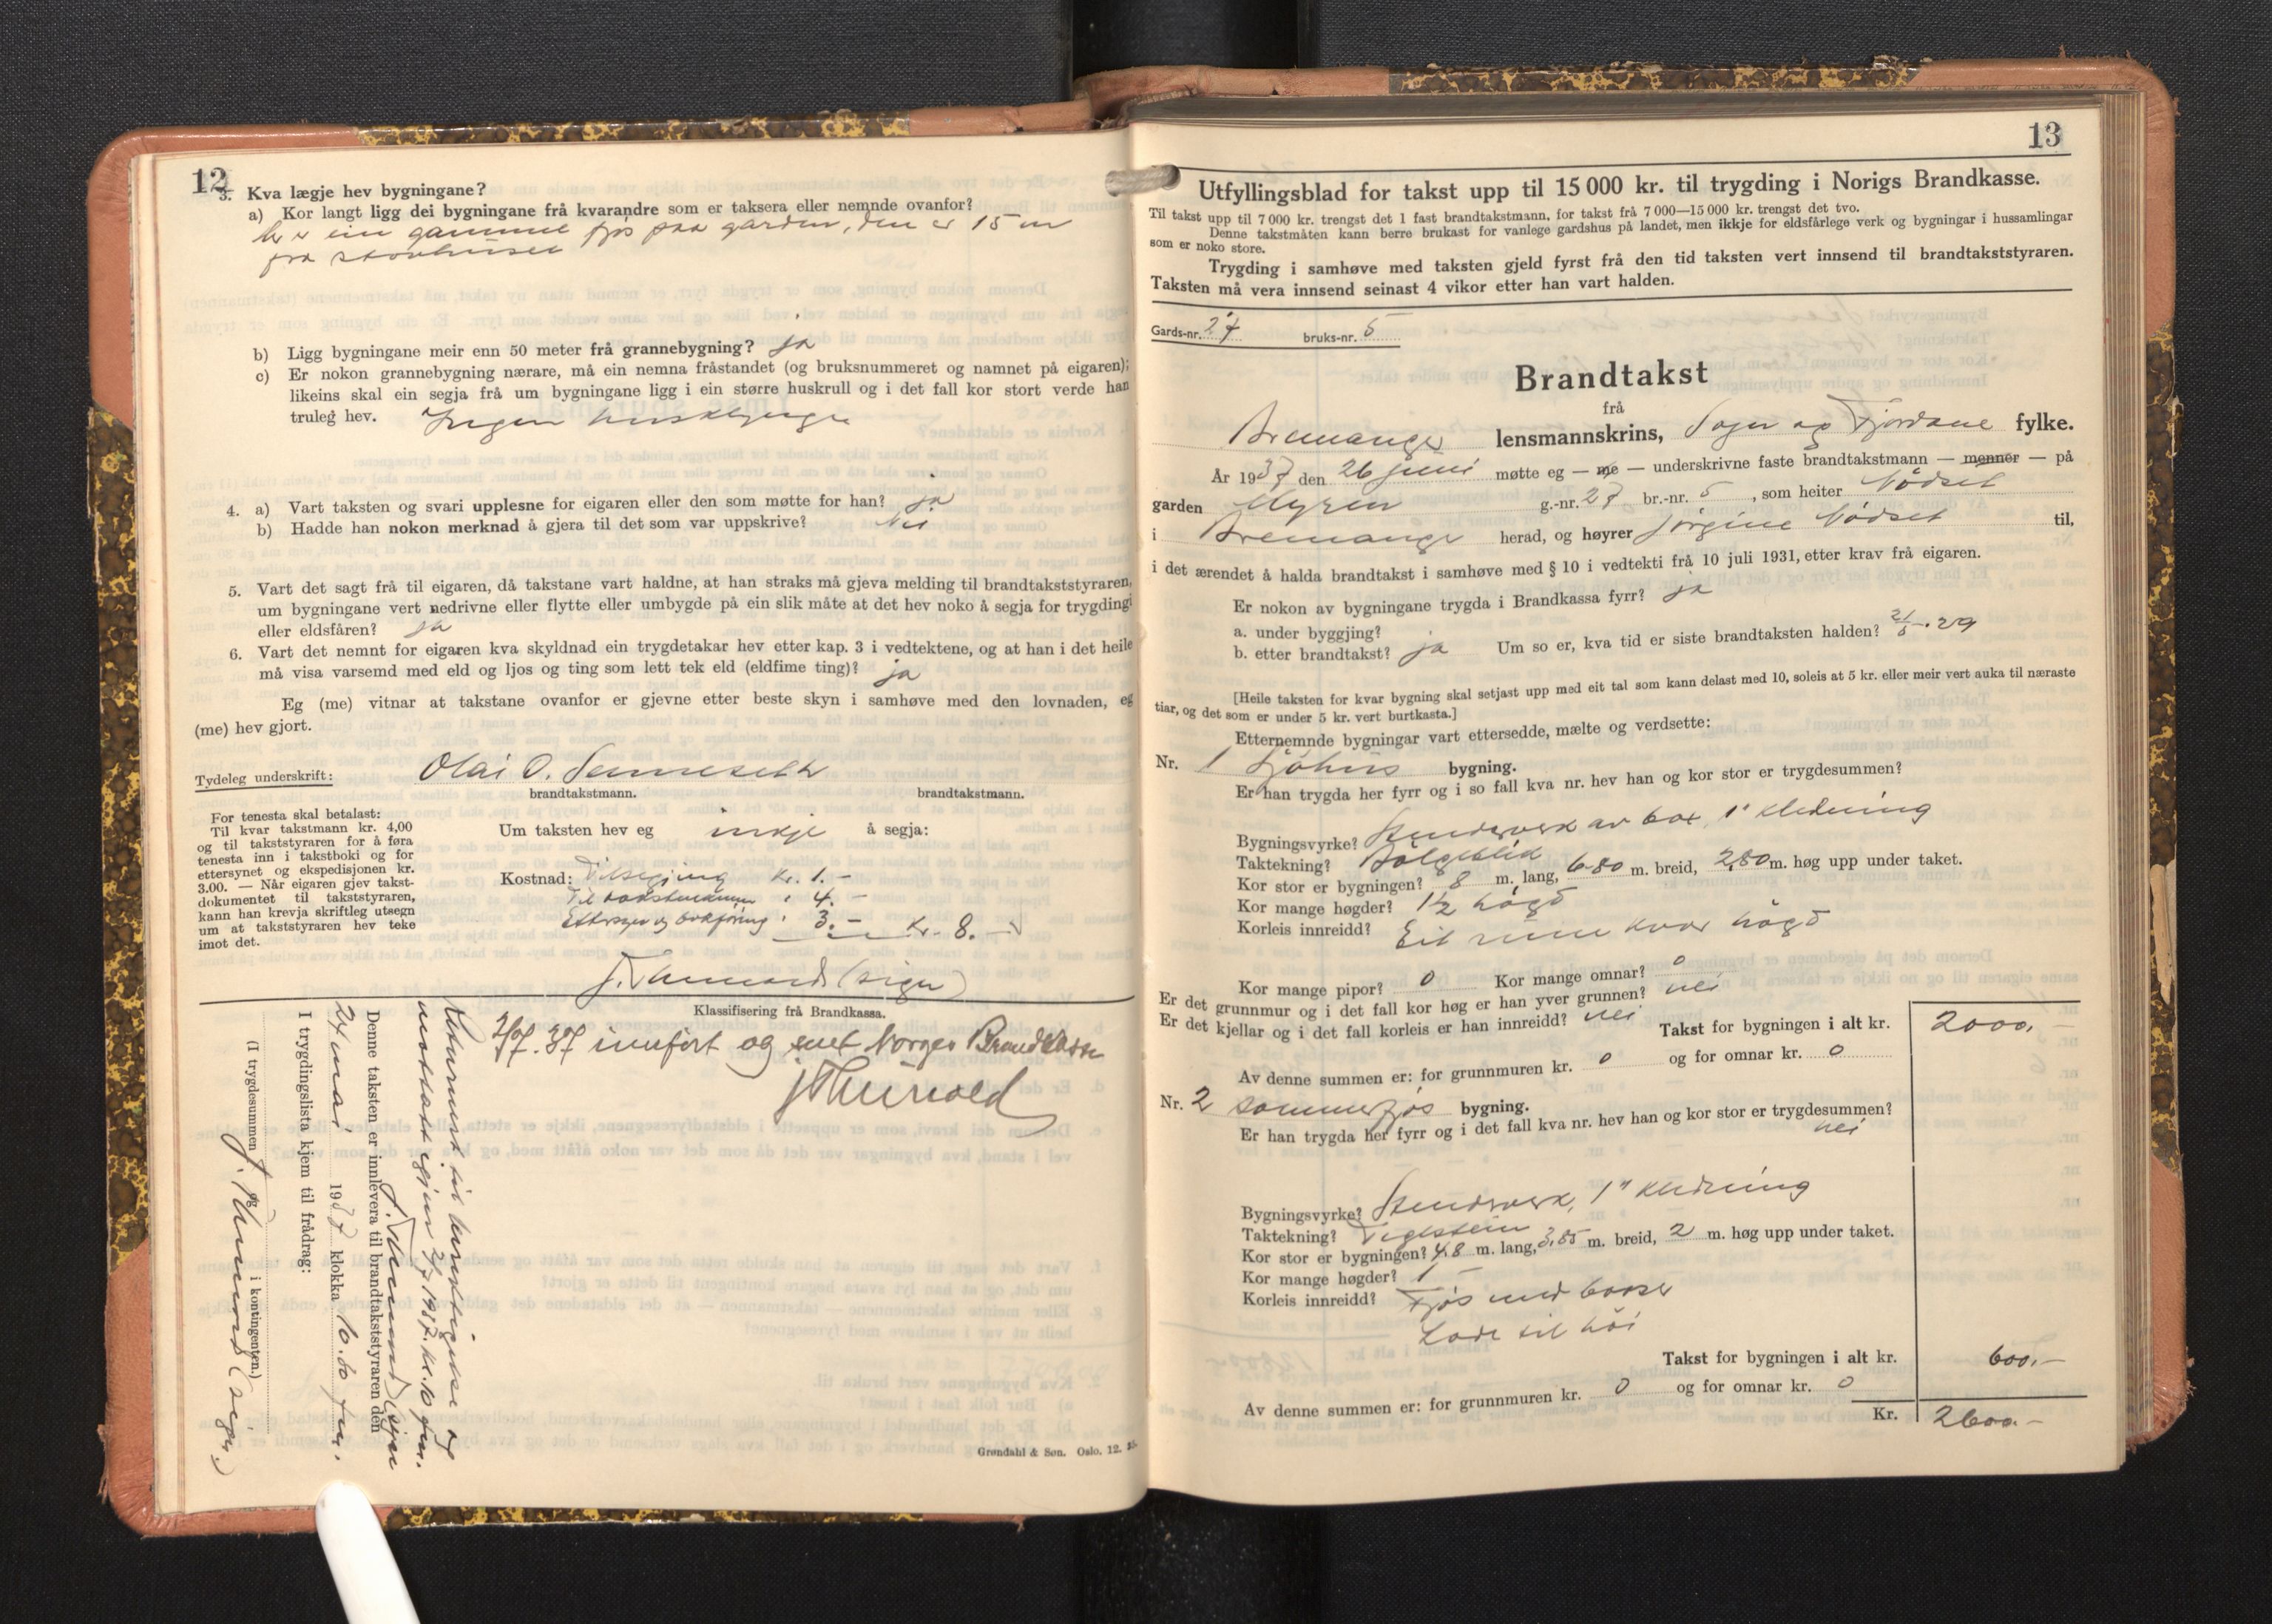 12
3. Kva lægje hev bygningane?
a) Kor langt ligg dei bygningane frå kvarandre som er taksera eller nemnde ovanfor?
er ein gammel fjøs paa garden, den er 15 m
fra stovhuset
b) Ligg bygningane meir enn 50 meter frå grannebygning? ja
c) Er nokon grannebygning nærare, må ein nemna fråstandet (og bruksnummeret og namnet på eigaren);
likeins skal ein segja frå um bygningane ligg i ein større huskrull og i det fall kor stort verde han
truleg hev. Ingen
4. a) Vart taksten og svari upplesne for eigaren eller den som møtte for han? ja
b) Hadde han nokon merknad å gjera til det som var uppskrive? Nei
5. Vart det sagt frå til eigaren, då takstane vart haldne, at han straks må gjeva melding til brandtakststyraren,
um bygningane vert nedrivne eller flytte eller umbygde på ein slik måte at det hev noko å segja for trygdingi
eller eldsfåren? ja
6. Vart det nemnt for eigaren kva skyldnad ein trygdetakar hev etter kap. 3 i vedtektene, og at han i det heile
må visa varsemd med eld og ljos og ting som lett tek eld (eldfime ting)? ja
Eg (me) vitnar at takstane ovanfor er gjevne etter beste skyn i samhøve med den lovnaden, eg
(me) hev gjort.
Tydeleg underskrift: Olai O.
brandtakstmann. brandtakstmann.
For tenesta skal betalast:
Til kvar takstmann kr. 4,00
og til takststyraren for å føra
tenesta inn i takstboki og for
ettersynet og ekspedisjonen kr.
3.00. — Når eigaren gjev takst-
dokumentet til takststyraren,
kann han krevja skriftleg utsegn
um at takststyraren hev teke
imot det.
Um taksten hev eg inkje å segja:
Kostnad: Tilsegjing kr. 1.-
Til takstmannen " 4.-
Ettersyn og bokføring " 3.- kr. 8.-
(sign)
Klassifisering frå Brandkassa.
2/7.37 innført og sent Norges Brandkasse
Returnert til
mottatt igjen 2/7 1937. kl. 10 fm.
Denne taksten er innlevera til brandtakststyraren den
24 mai 1937 klokka 10.00 fm.
(sign
I trygdingslista kjem til frådrag:
(I trygdesummen og i kontingenten.)
(sign.)
Grøndahl & Søn. Oslo. 12.
13
Utfyllingsblad for takst upp til 15 000 kr. til trygding i Norigs Brandkasse.
Til takst upp til 7 000 kr. trengst det 1 fast brandtakstmann, for takst frå 7 000—15 000 kr. trengst det tvo.
Denne takstmåten kann berre brukast for vanlege gardshus på landet, men ikkje for eldsfårlege verk og bygningar i hussamlingar
som er noko store.
Trygding i samhøve med taksten gjeld fyrst frå den tid taksten vert innsend til brandtakststyraren.
Taksten må vera innsend seinast 4 vikor etter han vart halden.
Gards-nr. 27 bruks-nr. 5
Brandtakst
frå
Bremanger lensmannskrins, Sogn og Fjordane fylke.
År 1937 den 26 juni møtte eg — me — underskrivne faste brandtakstmann — menner — på
garden Myren g.-nr. 27 br.-nr. 5, som heiter Nødset
i Bremanger herad, og høyrer Jørgine Nødset til,
i det ærendet å halda brandtakst i samhøve med § 10 i vedtekti frå 10 juli 1931, etter krav frå eigaren.
Er nokon av bygningane trygda i Brandkassa fyrr? ja
a. under byggjing?
b. etter brandtakst? ja Um so er, kva tid er siste brandtaksten halden? 29
[Heile taksten for kvar bygning skal setjast upp med eit tal som kann delast med 10, soleis at 5 kr. eller meir vert auka til næraste
tiar, og det som er under 5 kr. vert burtkasta.]
Etternemnde bygningar vart ettersedde, mælte og verdsette:
Nr. 1 Sjøhus bygning.
Er han trygda her fyrr og i so fall kva nr. hev han og kor stor er trygdesummen?
Bygningsvyrke? Stenderverk av 6x4, 1" kledning
Taktekning? Bølgeblik
Kor stor er bygningen? 8 m. lang, 6.80 m. breid, 2,80 m. høg upp under taket.
Kor mange høgder? 1½ høgd
Korleis innreidd? Eit rum kvar høgd
Kor mange pipor? 0 Kor mange omnar? 0
Er det grunnmur og i det fall kor høg er han yver grunnen? nei
Er det kjellar og i det fall korleis er han innreidd? nei
Takst for bygningen i alt kr. 2000.-
Av denne summen er: for grunnmuren kr. 0 og for omnar kr. 0
Nr. 2 sommerfjøs bygning.
Er han trygda her fyrr og i det fall kva nr. hev han og kor stor er trygdesummen?
nei
Bygningsvyrke? Stenderverk, 1" kledning
Taktekning? Teglstein
Kor stor er bygningen? 4.8 m. lang, 3.85 m. breid, 2 m. høg upp under taket.
Kor mange høgder? 1
Korleis innreidd? Fjøs med baaser
Løde til høi
Takst for bygningen i alt kr. 600.-
Av denne summen er: for grunnmuren kr. 0 og for omnar kr. 0
Kr. 2600.-